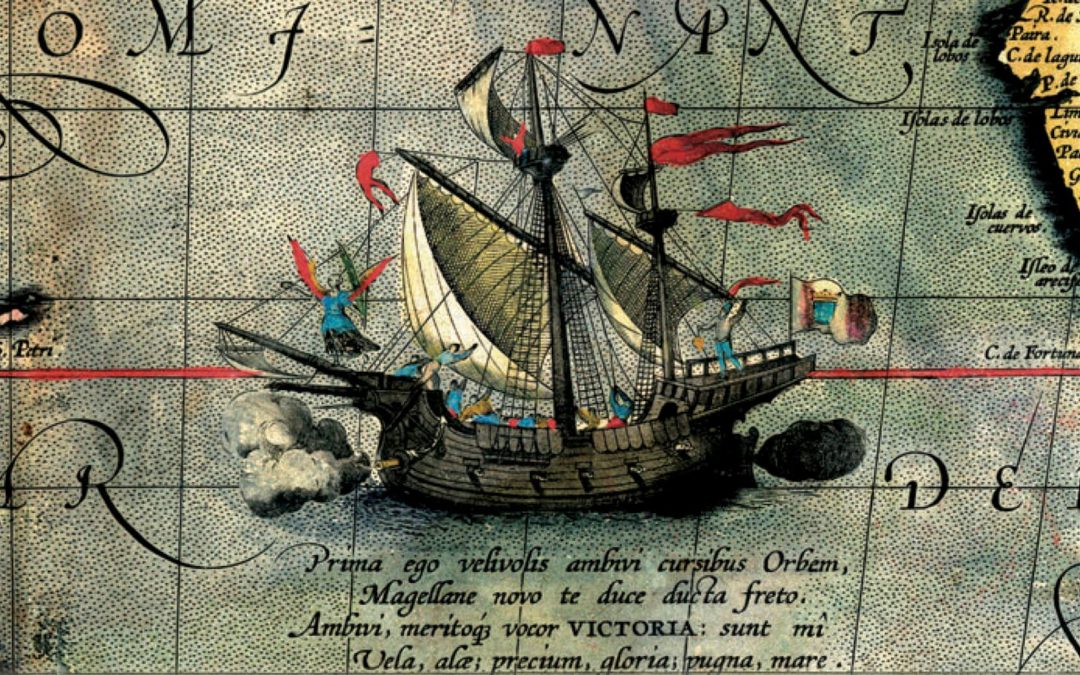 OMI = NANT
R. de
Paira.
Isola de
lobos
C. de lagu
P. de
Isolas de lobos
Lim
Civi
Pa
G
Isolas de
cuervos
Isleo de
arecife
Petri.
C. de Fortuna
R DE
Prima ego velivolis ambivi cursibus Orbem,
Magellane novo te duce ducta freto.
Ambivi, meritoq₃ vocor VICTORIA: sunt mî
Vela, alæ; precium, gloria; pugna, mare.